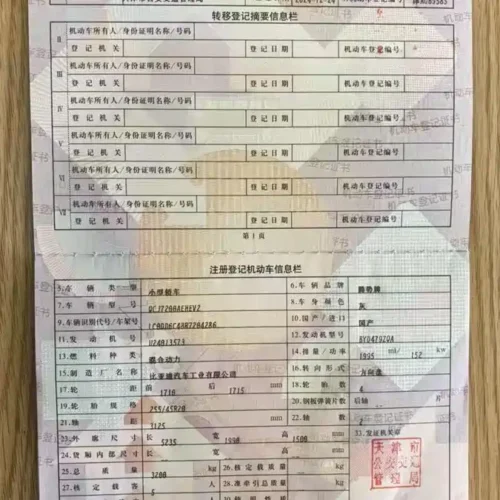 转移登记摘要信息栏
Ⅱ 机动车所有人/身份证明名称/号码
登记机关 登记日期 机动车登记编号
Ⅲ 机动车所有人/身份证明名称/号码
登记机关 登记日期 机动车登记编号
Ⅳ 机动车所有人/身份证明名称/号码
登记机关 登记日期 机动车登记编号
Ⅴ 机动车所有人/身份证明名称/号码
登记机关 登记日期 机动车登记编号
Ⅵ 机动车所有人/身份证明名称/号码
登记机关 登记日期 机动车登记编号
Ⅶ 机动车所有人/身份证明名称/号码
登记机关 登记日期 机动车登记编号
第1页
注册登记机动车信息栏
5.车辆类型 小型轿车 6.车辆品牌 腾势牌
7.车辆型号 8.车身颜色 灰
9.车辆识别代号/车架号 10.国产/进口 国产
11.发动机号 12.发动机型号
13.燃料种类 混合动力 14.排量/功率 1995 ml/ 152 kw
15.制造厂名称 比亚迪汽车工业有限公司 16.转向形式 方向盘
17.轮距 前 1710 后 1715 mm 18.轮胎数 4
19.轮胎规格 255/45R20 20.钢板弹簧片数 后轴 片
21.轴距 3125 mm 22.轴数 2
23.外廓尺寸 长 5235 宽 1990 高 1500 mm 33.发证机关章
24.货厢内部尺寸 长 宽 高 mm
25.总质量 3200 kg 26.核定载质量 kg
27.核定载客 5 人 28.准牵引总质量 kg
天津市
公安交通
管理局